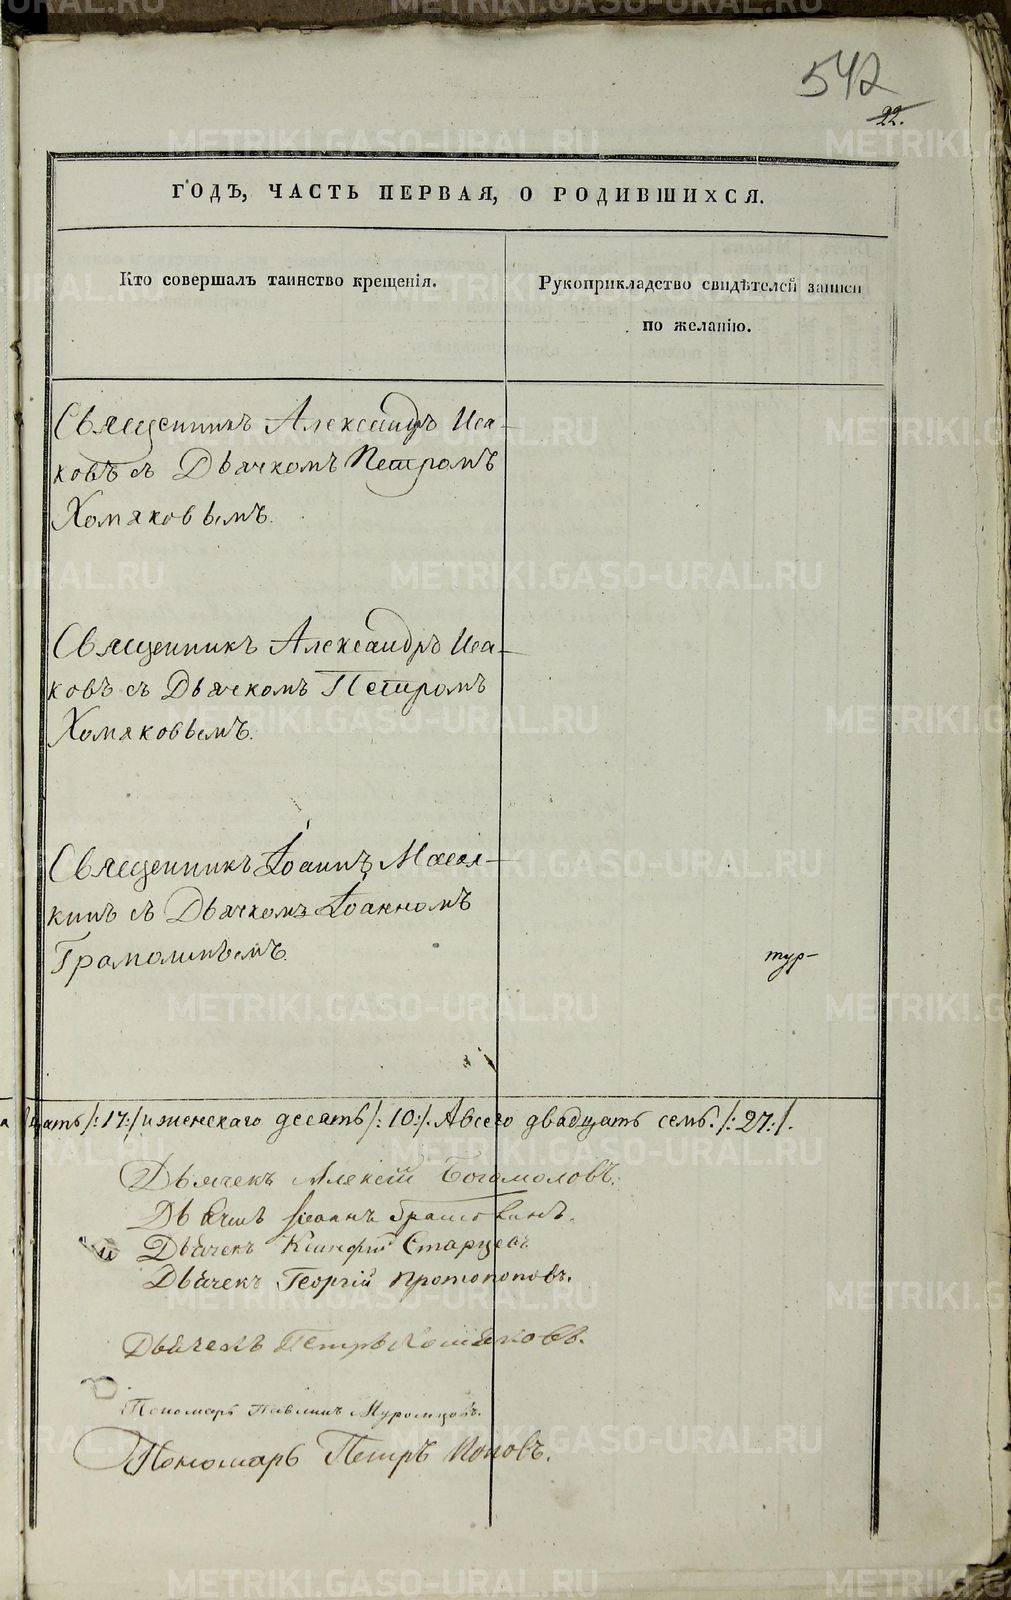 542
22.
ГОДЪ, ЧАСТЬ ПЕРВАЯ, О РОДИВШИХСЯ.
Кто совершалъ таинство крещенія.
Рукоприкладство свидѣтелей записи
по желанію.
Священникъ Александръ Иса-
ковъ съ Дьячкомъ Петромъ
Хомяковымъ.
Священникъ Александръ Иса-
ковъ съ Дьячкомъ Петромъ
Хомяковымъ.
Священникъ Іоаннъ Масал-
кинъ съ Дьячкомъ Іоанномъ
тур-
дцать /:17:/ и женскаго десять /:10:/. А всего двадцать семь. /:27:/.
Дьячекъ Алексій Богомоловъ.
Дьячекъ Іоаннъ
Дьячекъ Старцевъ
Дьячекъ Георгій Протопоповъ.
Дьячекъ Петръ Хомяковъ.
Пономарь Павлинъ Муромцовъ.
Пономарь Петръ Поповъ.
METRIKI.GASO-URAL.RU